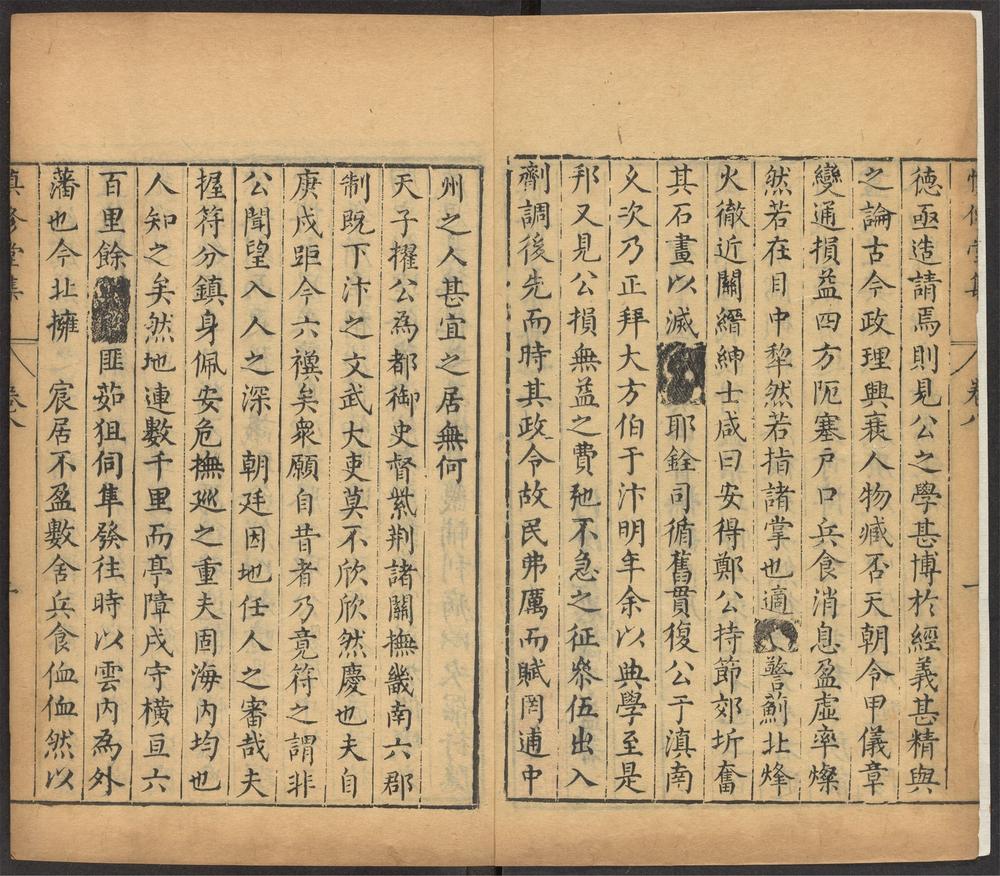 德亟造請焉則見公之學甚博於經義甚精與
之論古今政理興衰人物臧否天朝令甲儀章
變通損益四方阨塞戶口兵食消息盈虛率燦
然若在目中犂然若指諸掌也適警薊北烽
火徹近關縉紳士咸曰安得鄭公持節郊圻奮
其石畫以滅耶銓司循舊貫復公于滇南
乂次乃正拜大方伯于汴明年余以典學至是
邦又見公損無益之費弛不急之征叅伍出入
劑調後先而時其政令故民弗厲而賦罔逋中
州之人甚宜之居無何
天子擢公為都御史督紫荆諸關撫畿南六郡
制既下汴之文武大吏莫不欣欣然慶也夫自
庚戌距今六禩矣衆願自昔者乃竟符之謂非
公聞望入人之深 朝廷因地任人之審哉夫
握符分鎮身佩安危撫廵之重夫固海内均也
人知之矣然地連數千里而亭障戍守橫亘六
百里餘匪茹狙伺隼發往時以雲内為外
藩也今北擁 宸居不盈數舍兵食㐫㐫然以
真修堂集 卷八